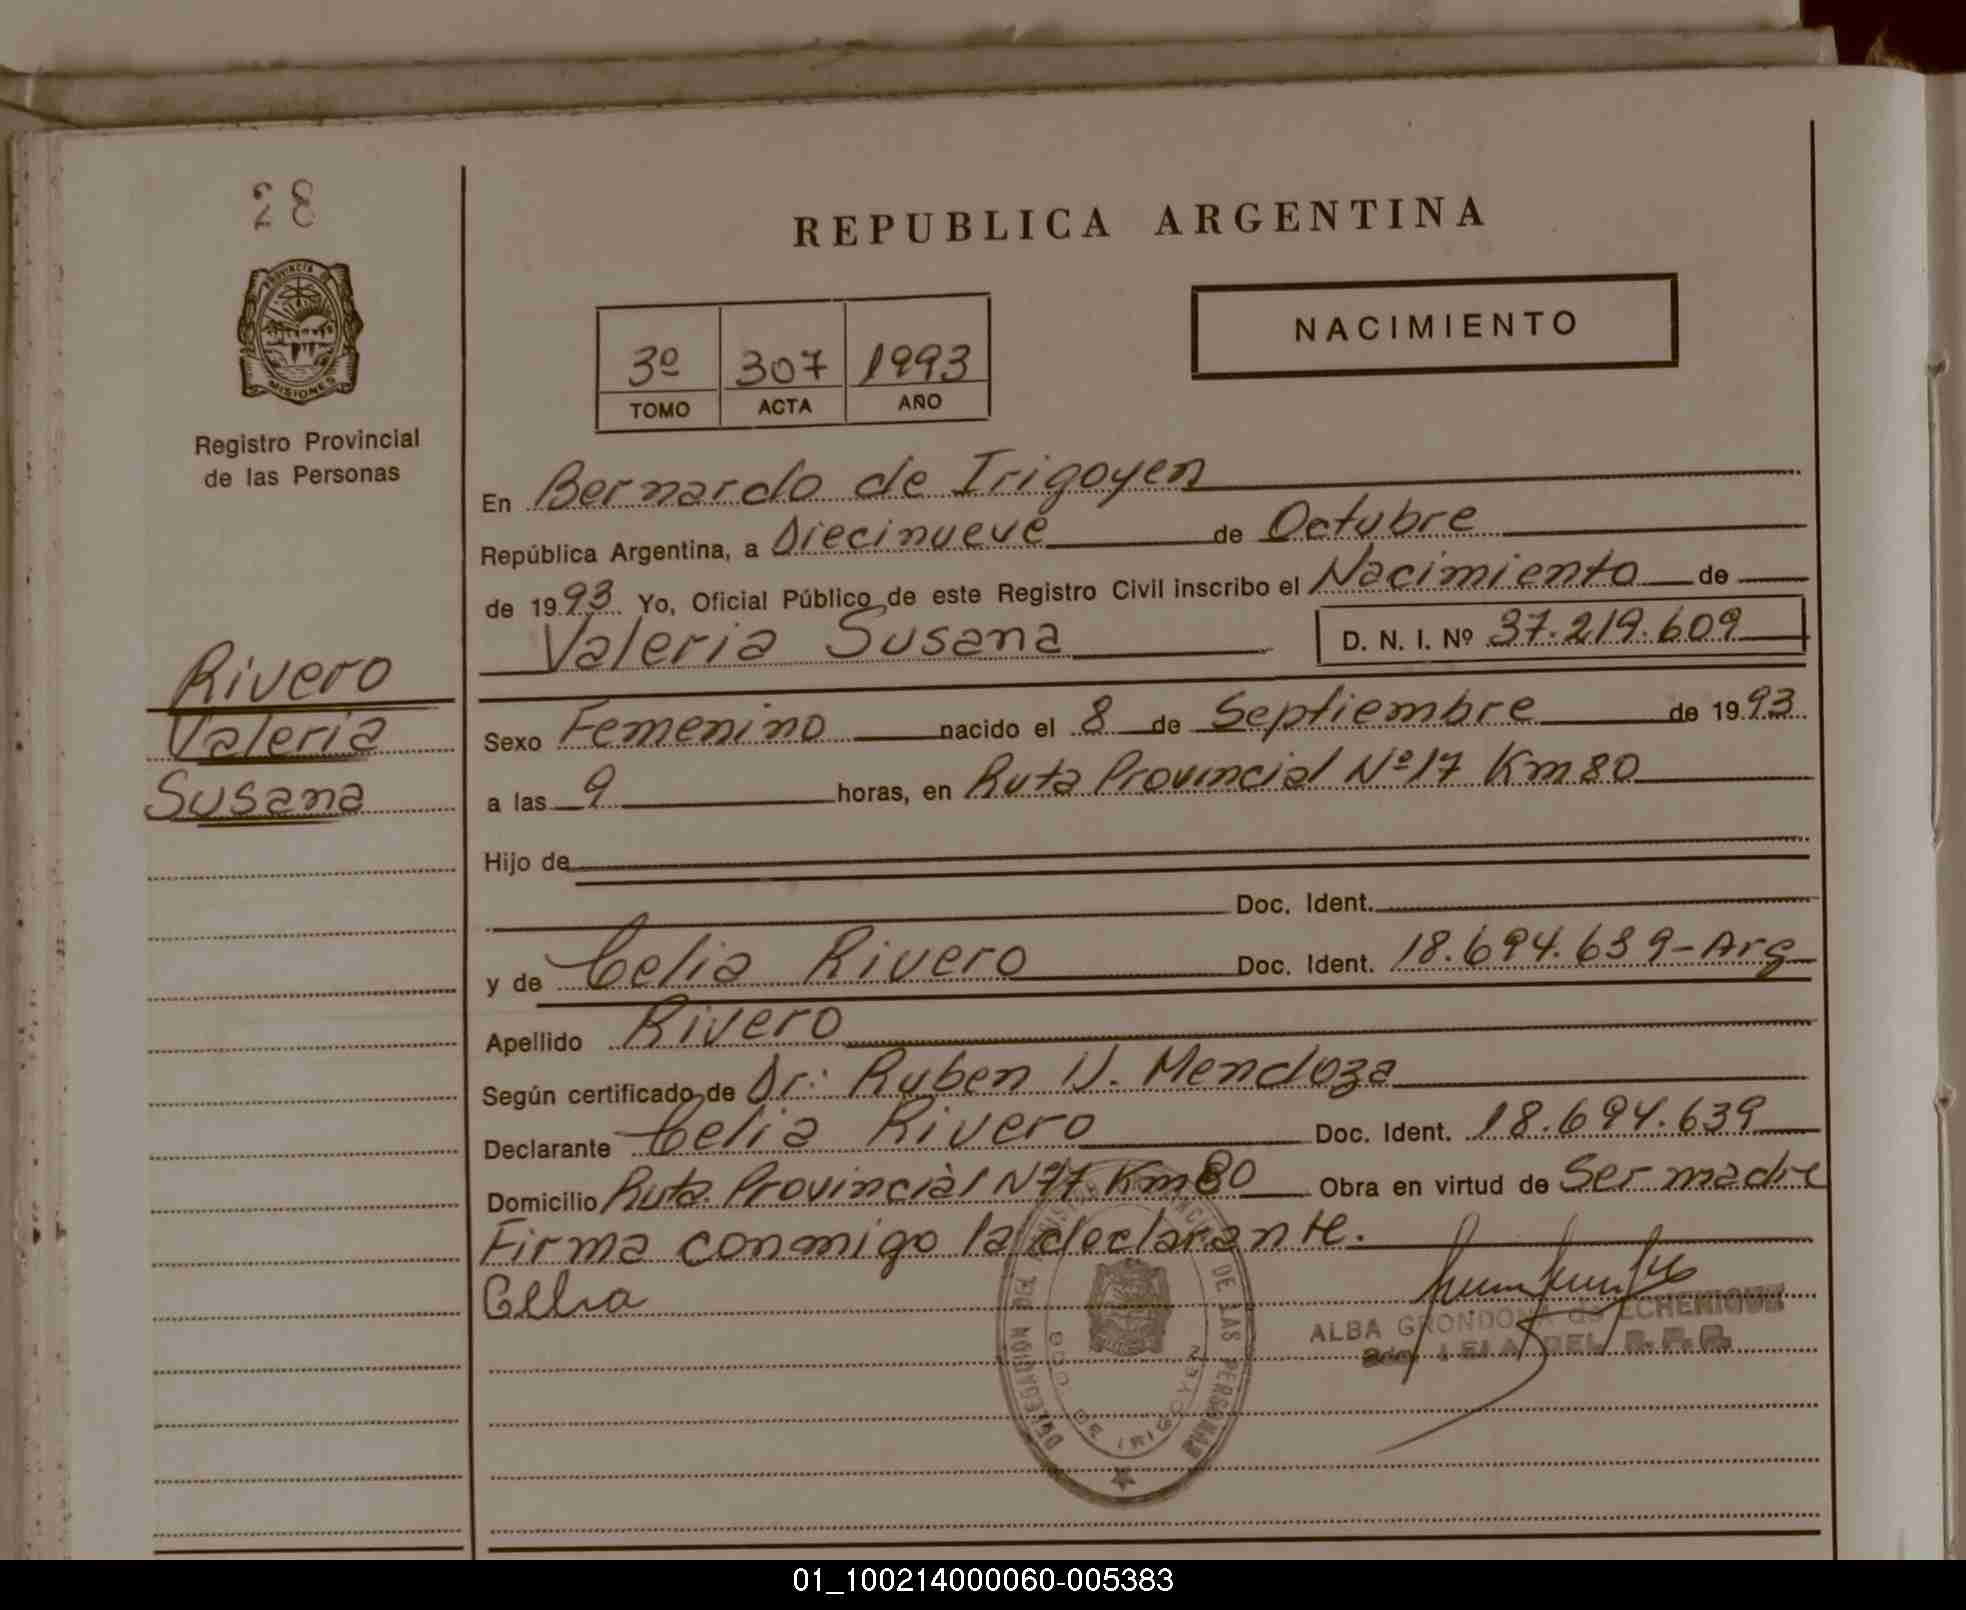 28
PROVINCIA DE
MISIONES
Registro Provincial
de las Personas
Rivero
Valeria
Susana
REPUBLICA ARGENTINA
NACIMIENTO
3º 307 1993
TOMO ACTA AÑO
En Bernardo de Irigoyen
República Argentina, a Diecinueve de Octubre
de 1993 Yo, Oficial Público de este Registro Civil inscribo el Nacimiento de
Valeria Susana D. N. I. Nº 37.219.609
Sexo Femenino nacido el 8 de Septiembre de 1993
a las 9 horas, en Ruta Provincial Nº 17 Km 80
Hijo de
Doc. Ident.
y de Celia Rivero Doc. Ident. 18.694.639-Arg
Apellido Rivero
Según certificado de Dr: Ruben Mendoza
Declarante Celia Rivero Doc. Ident. 18.694.639
Domicilio Ruta Provincial Nº 17 Km 80 Obra en virtud de Ser madre
Firma conmigo la declarante.
Celia
DELEGACION DEL DE LAS PERSONAS
BDO. DE IRIGOYEN
ALBA GRONDONA de ECHENIQUE
DEL R. P. P.
01_100214000060-005383